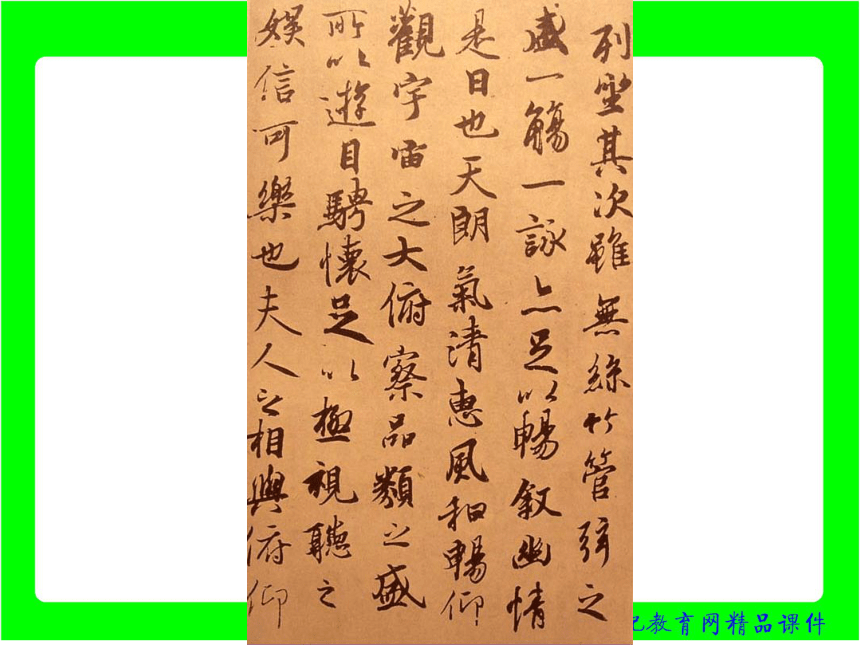 列坐其次雖無絲竹管弦之
盛一觴一詠亦足以暢叙幽情
是日也天朗氣清惠風和暢仰
觀宇宙之大俯察品類之盛
所以遊目騁懷足以極視聽之
娛信可樂也夫人之相與俯仰
教育网精品课件